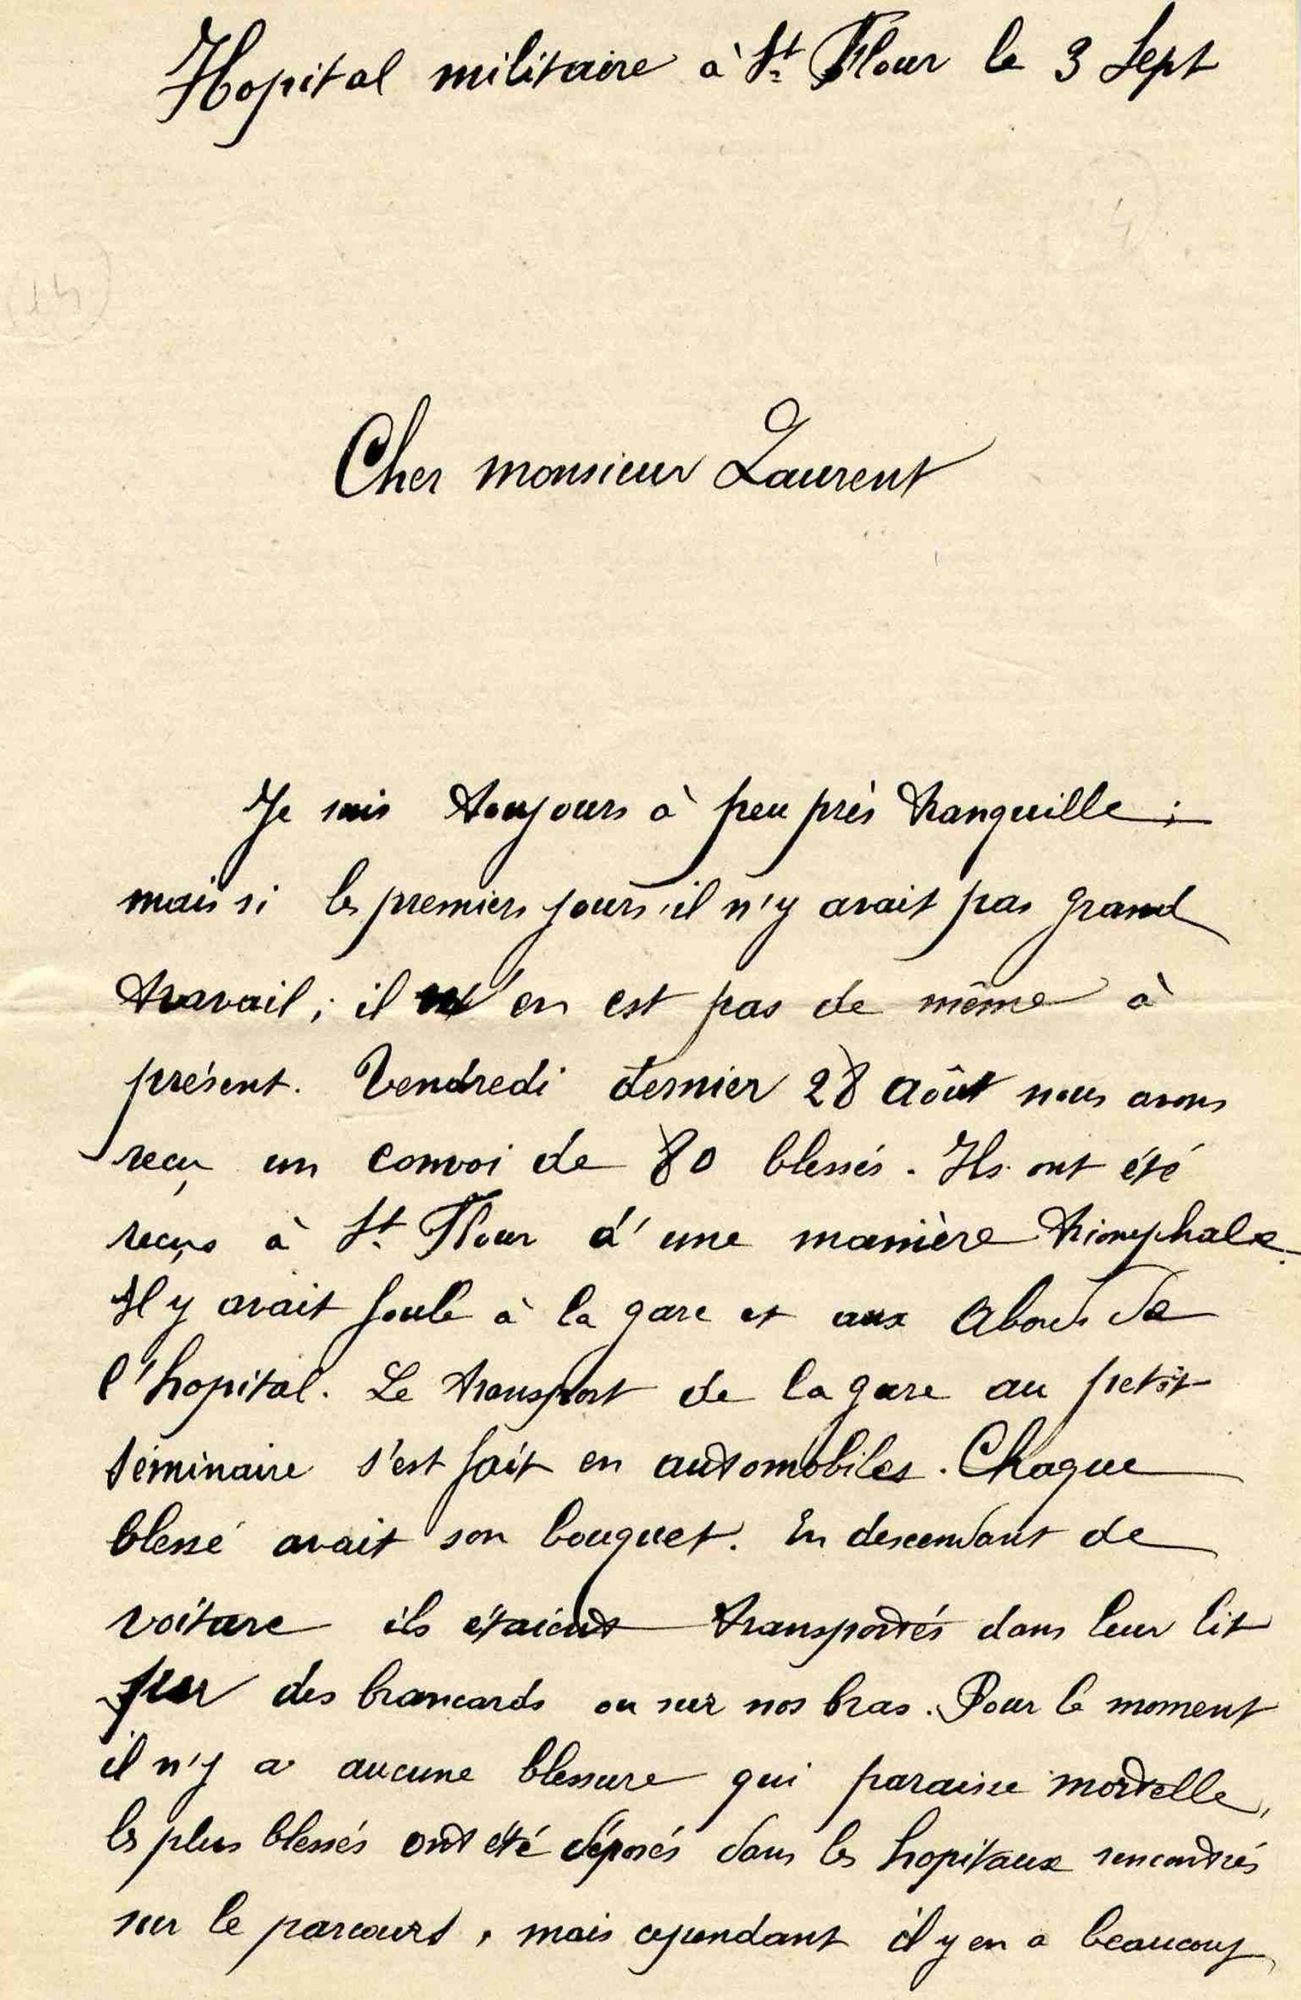 Hopital militaire à St Flour le 3 Sept
14
4
Cher monsieur Laurent
Je suis toujours à peu près tranquille ;
mais si les premiers jours il n'y avait pas grand
travail, il n'en est pas de même à
présent. Vendredi dernier 28 août nous avons
reçu un convoi de 80 blessés. Ils ont été
reçus à St Flour d'une manière triomphale.
Il y avait foule à la gare et aux abords de
l'hopital. Le transport de la gare au petit
séminaire s'est fait en automobiles. Chaque
blessé avait son bouquet. En descendant de
voiture ils étaient transportés dans leur lit
sur des brancards ou sur nos bras. Pour le moment
il n'y a aucune blessure qui paraisse mortelle,
les plus blessés ont été déposés dans les hopitaux rencontrés
sur le parcours, mais cependant il y en a beaucoup